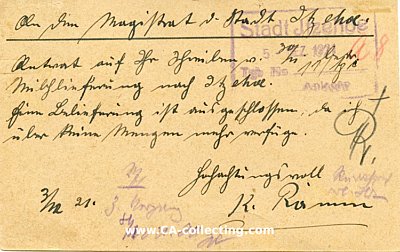 An den Magistrat d. Stadt Itzehoe.
Stadt Itzehoe
5. DEZ. 1921
Tgb. No.
Anlagen
Antwort auf Ihr Schreiben v. 30/11 betr.
Milchlieferung nach Itzehoe.
Eine Belieferung ist ausgeschlossen, da ich
über keine Mengen mehr verfüge.
Hochachtungsvoll
3/12 21.
K. Ramm
www.CA-collecting.com